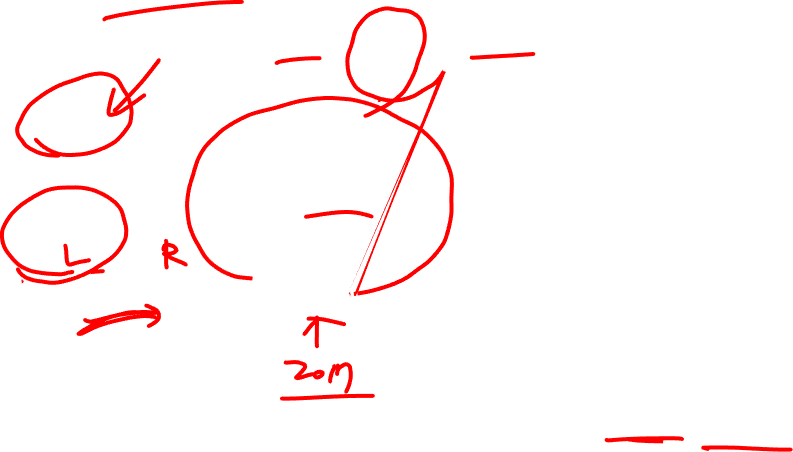 L
R
20M